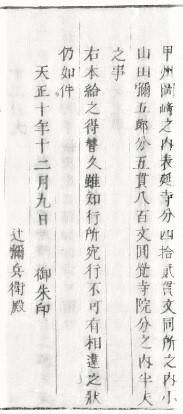 甲州圓﨑之内表延寺分四拾貳貫文同所之内小
山田彌五郎分五貫八百文圓覚寺院分之内半夫
之事
右本給之得替久雖知行所宛行不可有相違之状
仍如件
天正十年十二月九日　御朱印
辻彌兵衛殿